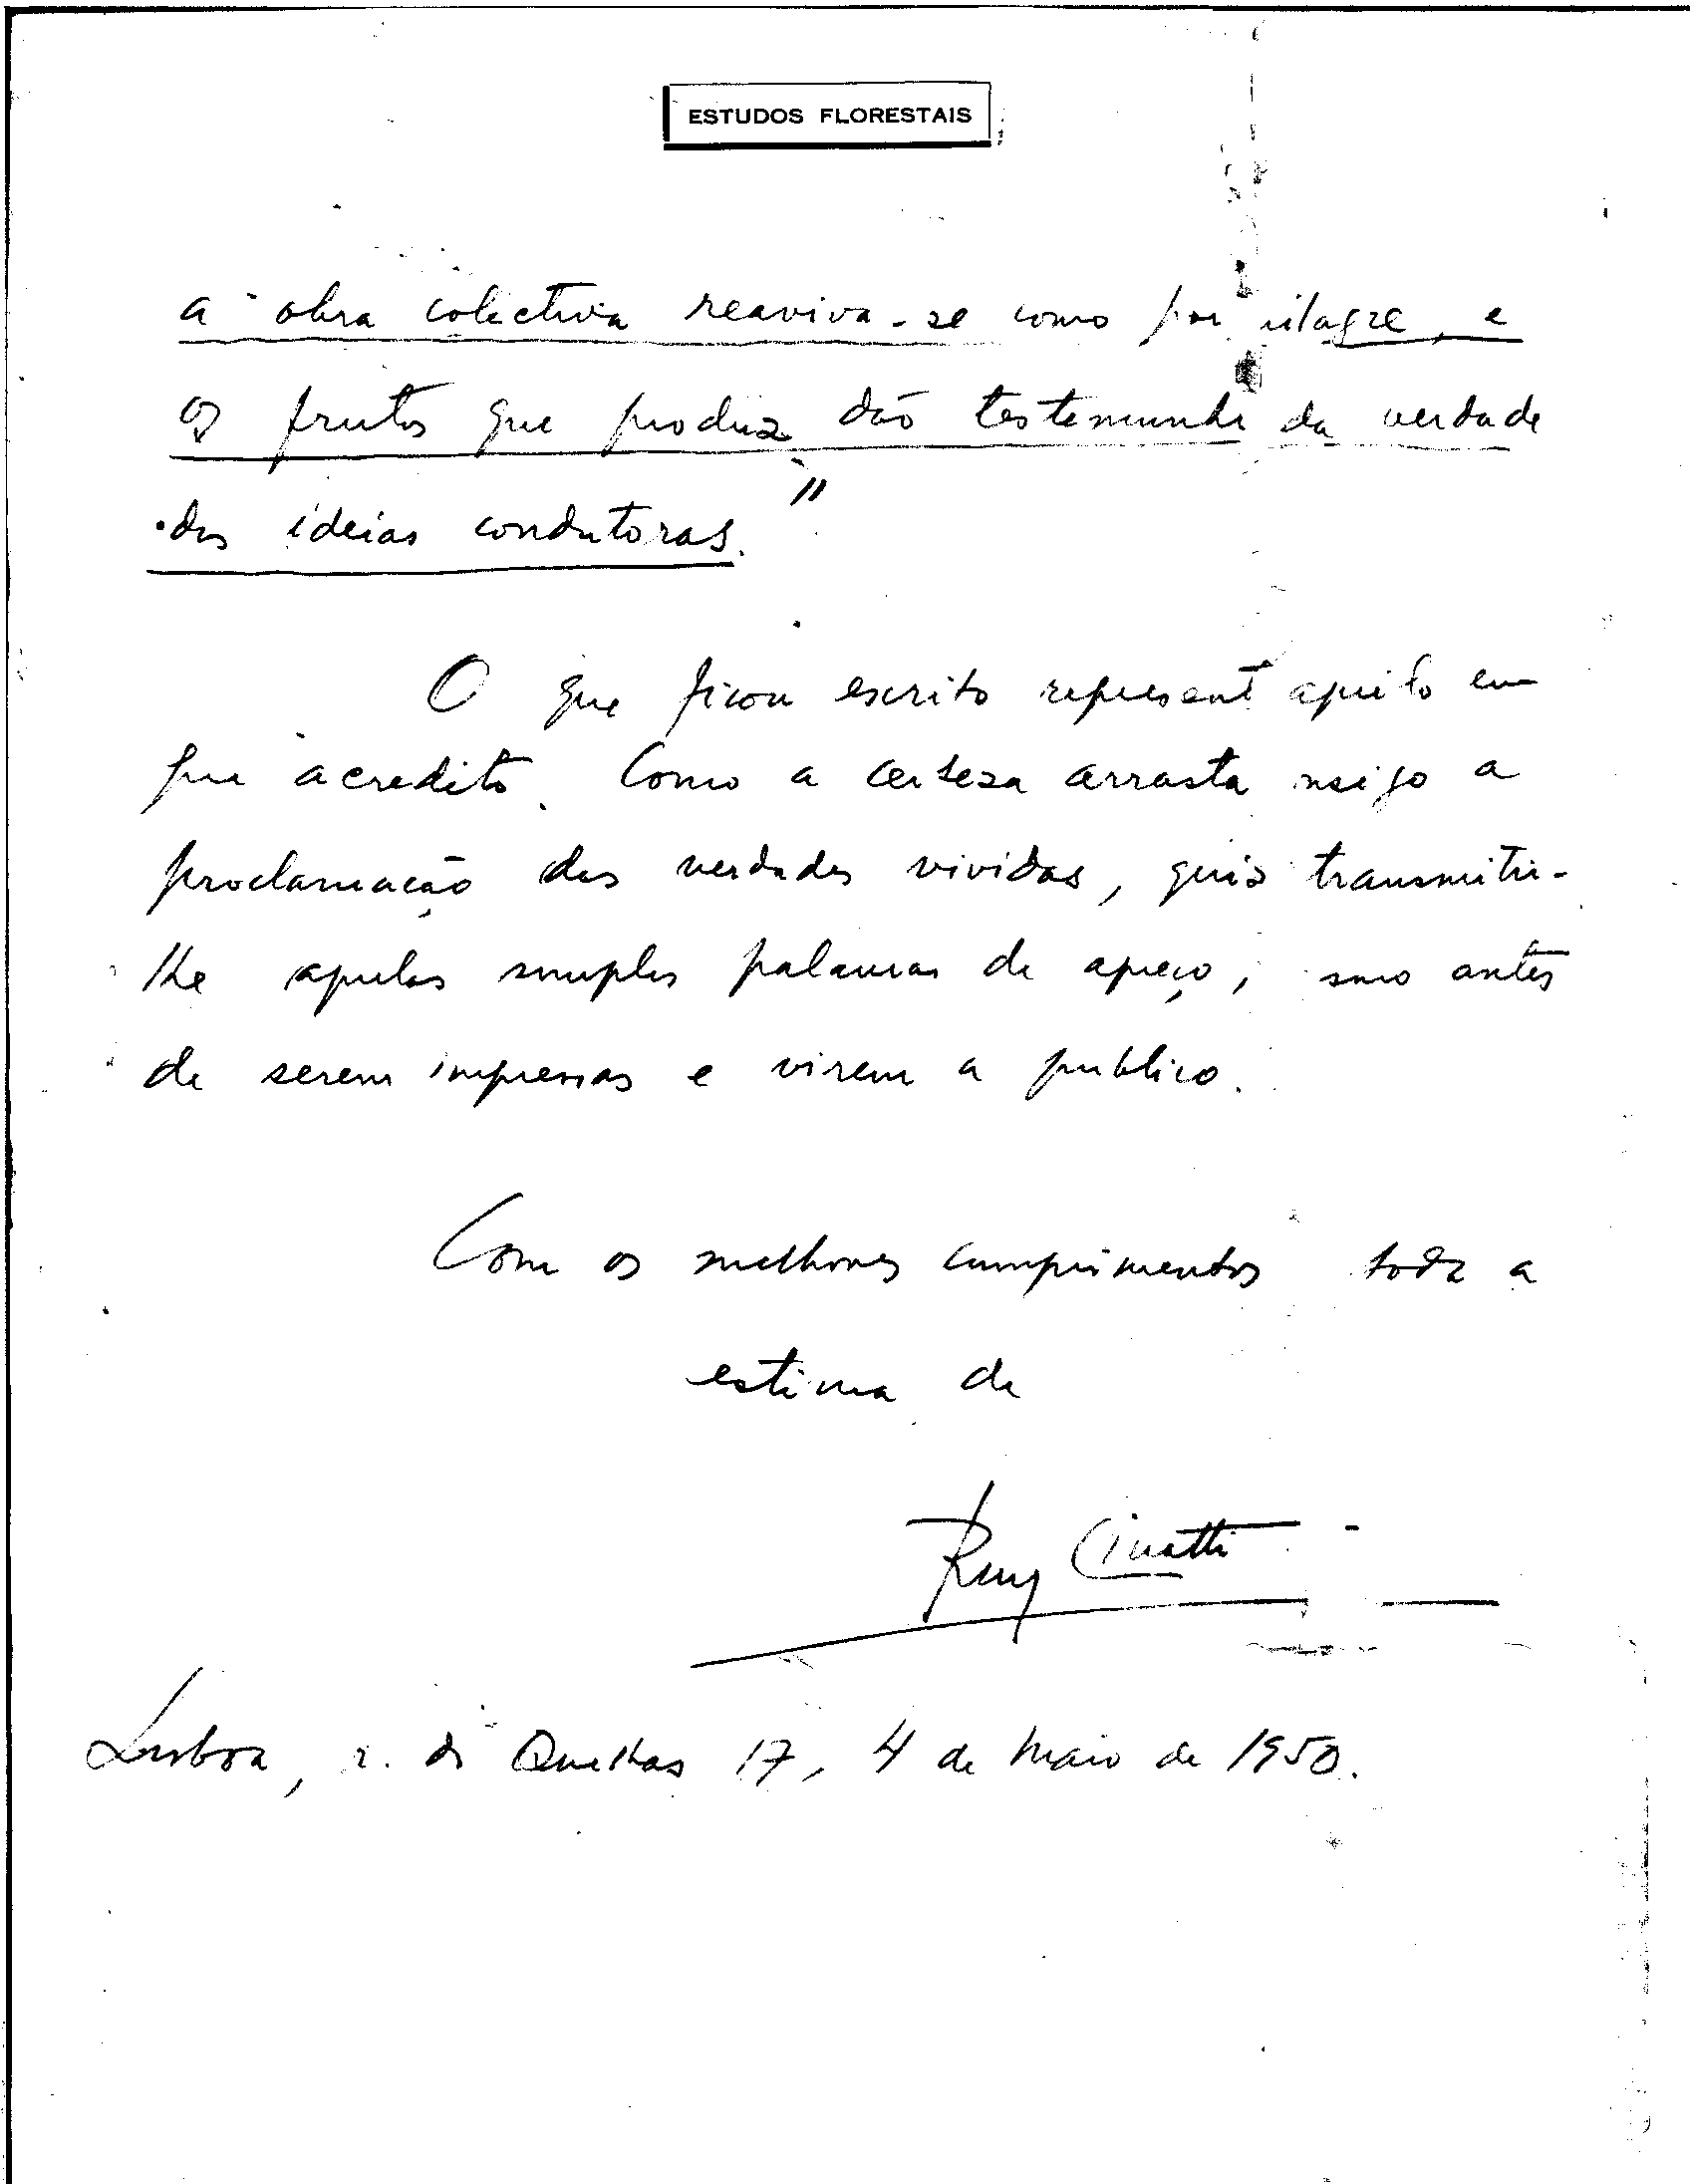 ESTUDOS FLORESTAIS
a obra colectiva reaviva-se como por ilagre, e
os frutos que produz dão testemunho da verdade
das ideias condutoras."
O que ficou escrito represent aquilo em
que acredito. Como a certeza arrasta nsigo a
proclamação das verdades vividas, quis transmitir-
lhe aquelas simples palavras de apreço, mo antes
de serem impressas e virem a publico.
Com os melhores cumprimentos toda a
estima de
Ruy Cinatti
Lisboa, r. do Quelhas 17, 4 de Maio de 1950.